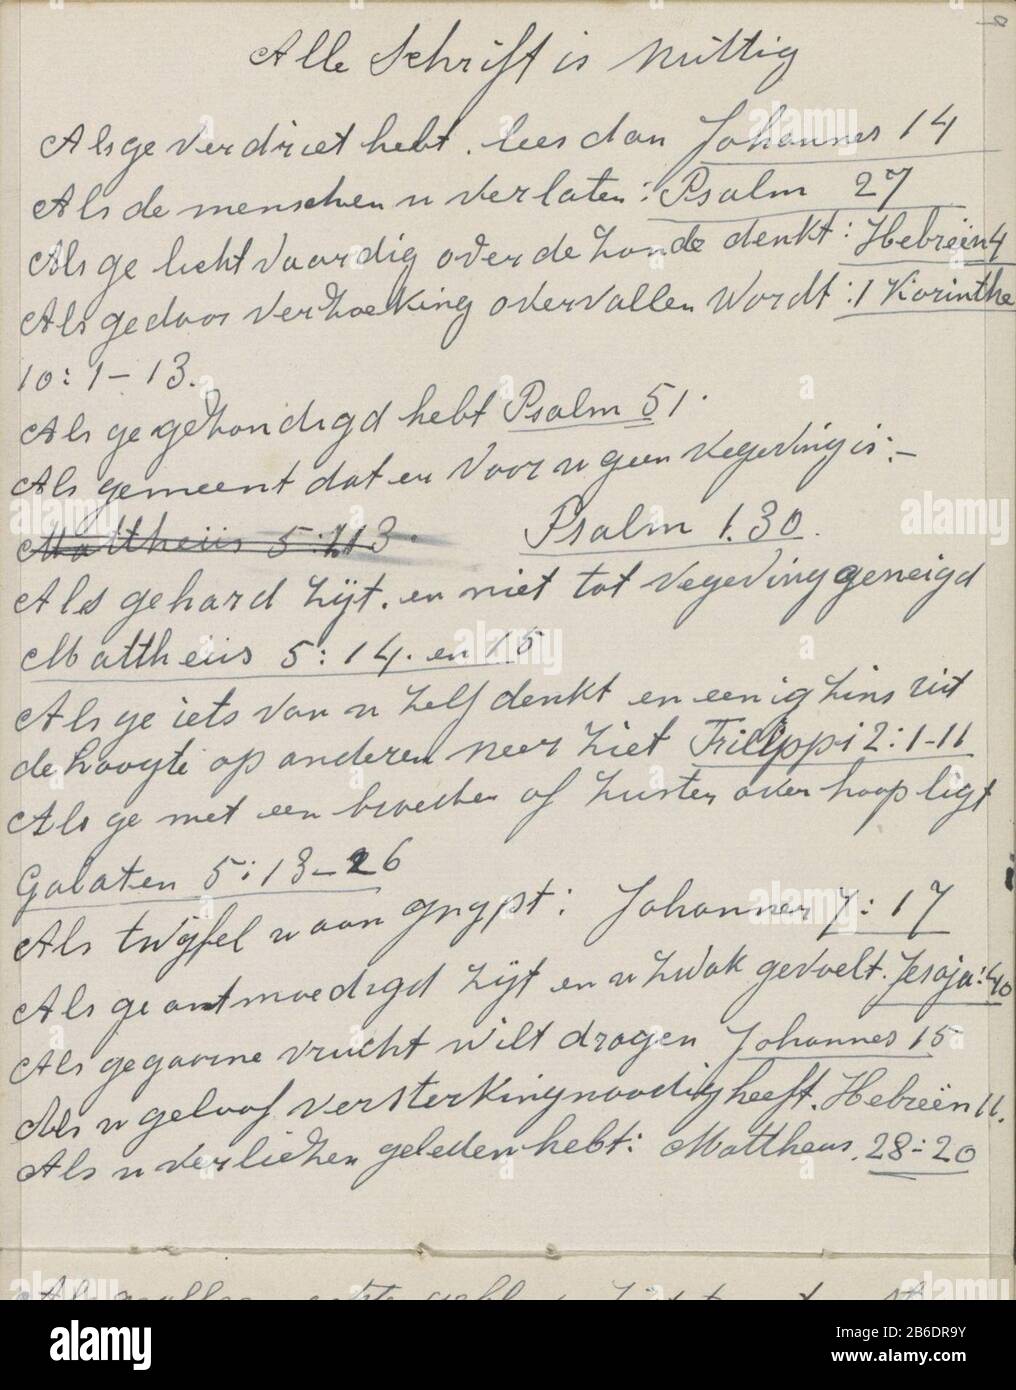 Alle Schrift is nuttig
Als ge verdriet hebt. lees dan Johannes 14
Als de menschen u verlaten: Psalm 27
Als ge licht vaardig over de zonde denkt: Hebreën 4
Als ge door verzoeking overvallen wordt: 1 Korinthe
10: 1-13.
Als ge gezondigd hebt Psalm 51.
Als ge meent dat er voor u geen vegeving is:-
Mattheüs 5: 13. Psalm 130.
Als ge hard zijt. en niet tot vegeving geneigd
Mattheüs 5: 14. en 15
Als ge iets van u zelf denkt en eenigzins uit
de hoogte op anderen neer ziet Filippi 2: 1-11
Als ge met een broeder of zuster over hoop ligt
Galaten 5: 13-26
Als twijfel u aan grypt: Johannes 7: 17
Als ge ontmoedigd zijt en u zwak gevoelt. Jesaja: 40
Als ge gaarne vrucht wilt dragen Johannes 15
Als u geloof versterking noodig heeft. Hebreën 11.
Als u verliezen geleden hebt: Mattheus. 28:20
alamy
Image ID: 2B6DR9Y
www.alamy.com